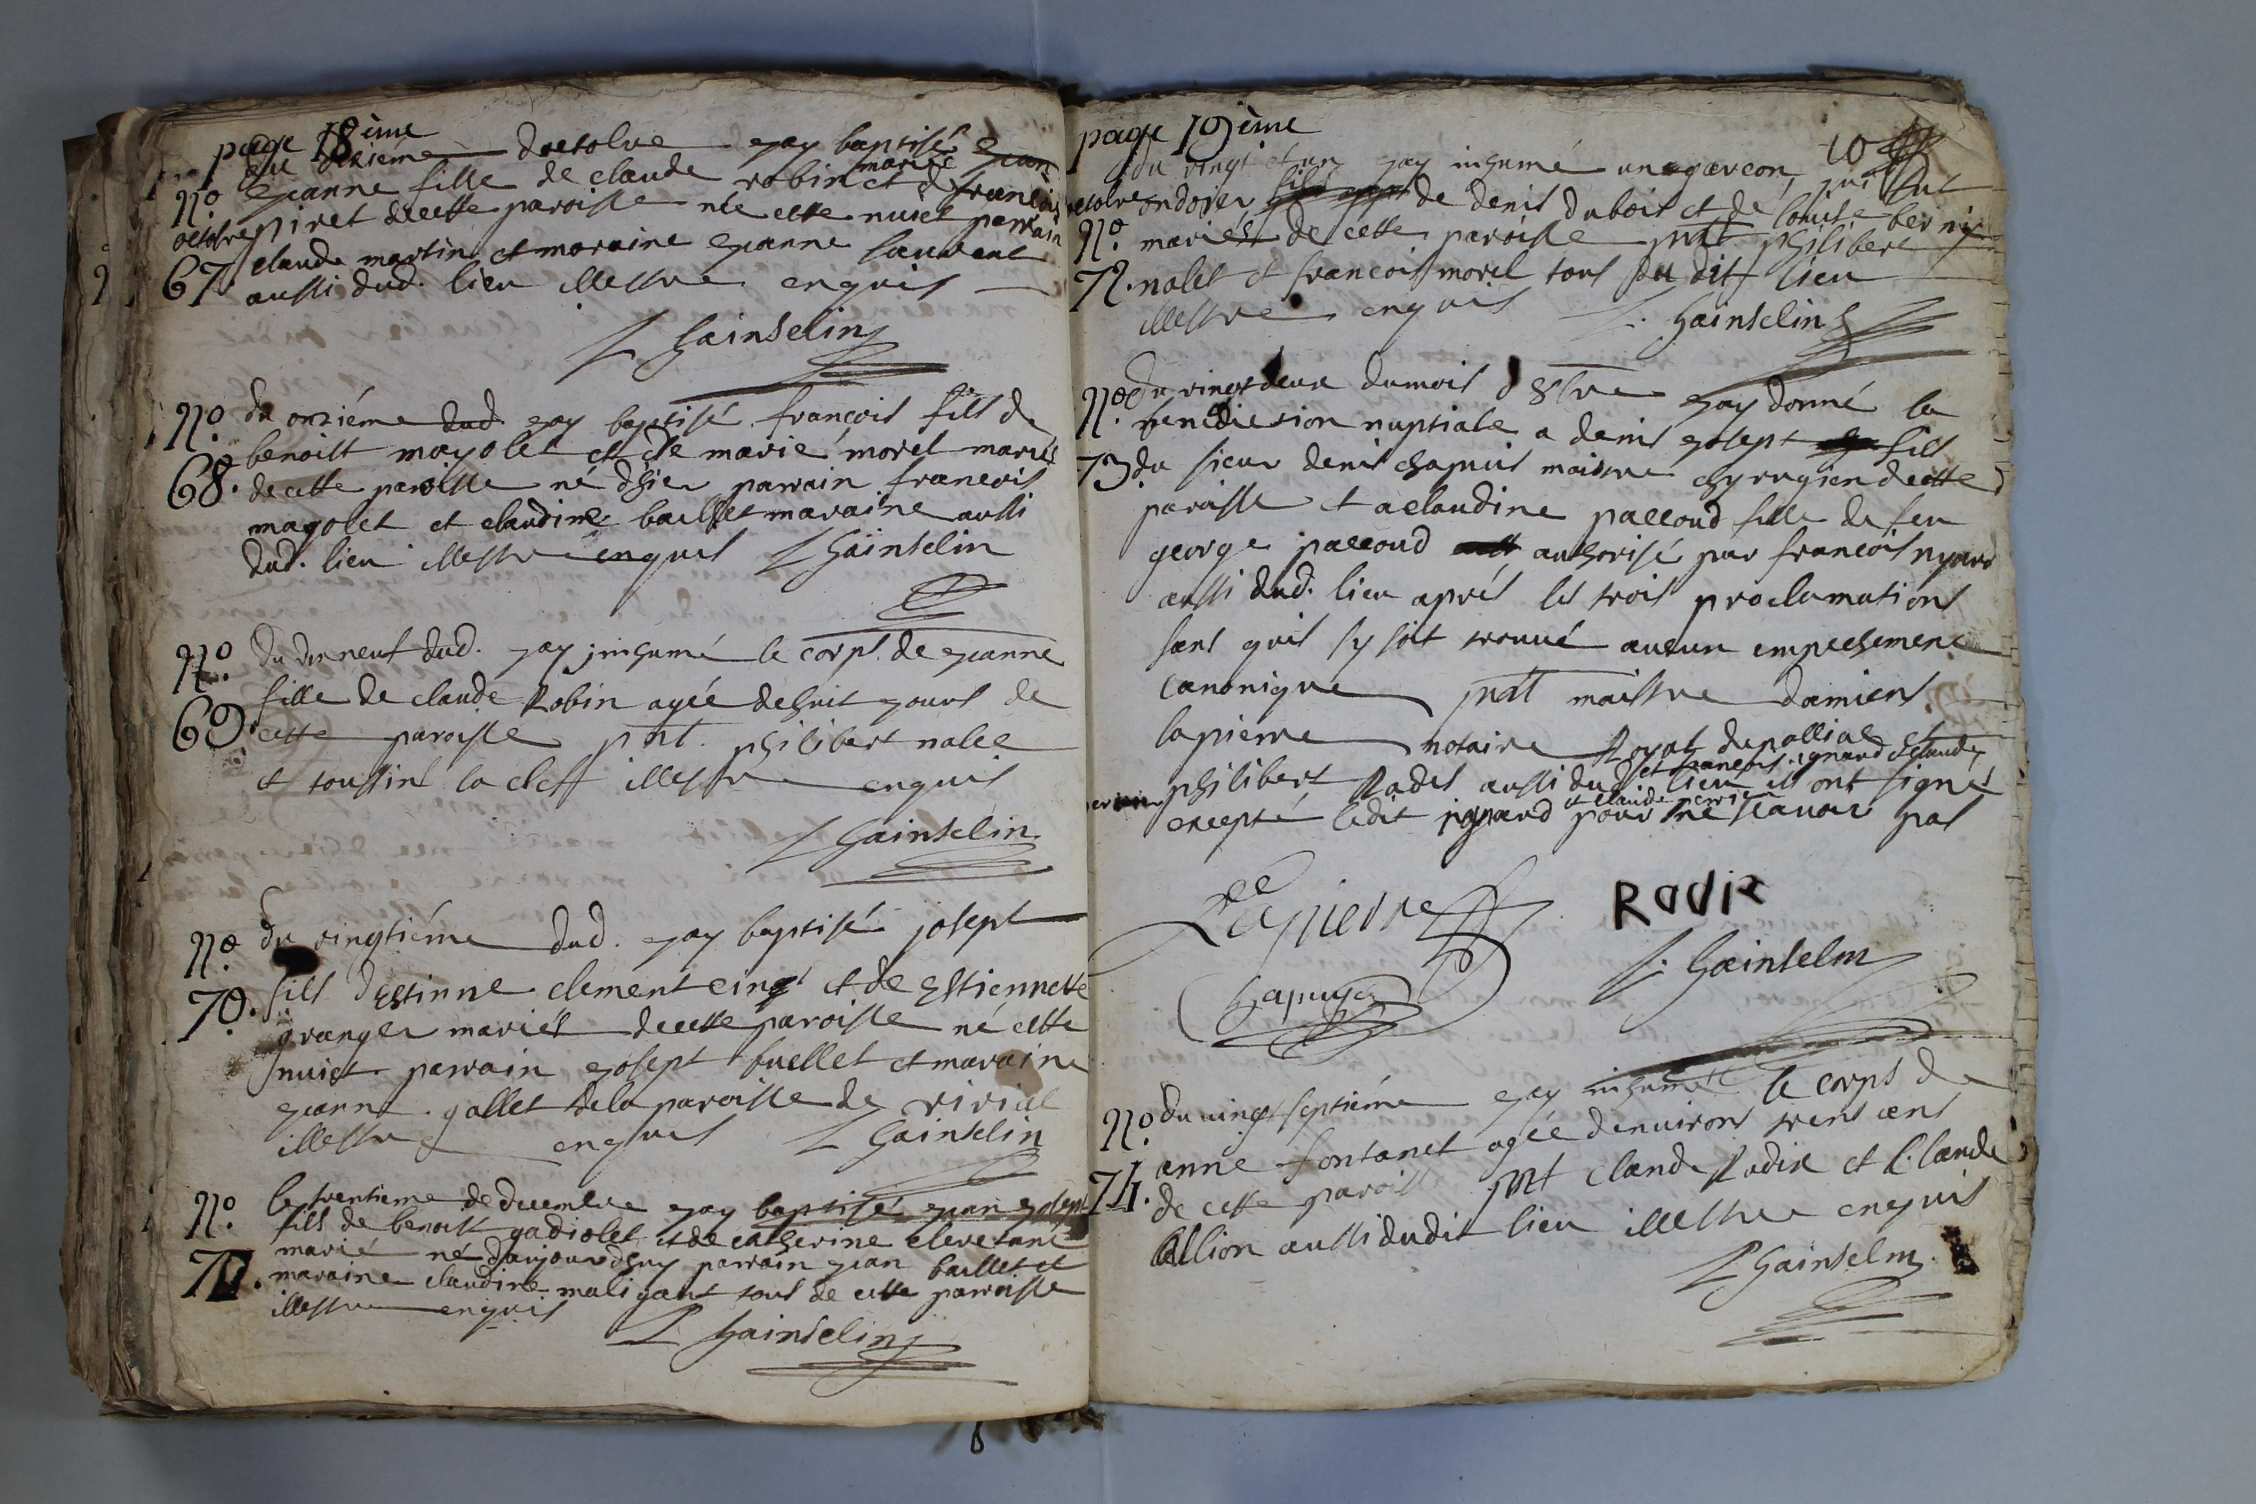 page 18ème
du dixiéme doctobre jay baptisé jeane
No jeanne fille de claude robin et de francoise mariés
octobre piret decette paroisse née cette nuict parrain
67. claude martin et moraine jeanne laurent
aussi dud. lieu illettre enquis
L Hainselin
No du onziéme dud. jay baptisé françois fils de
benoist mayolet et de marie morel mariés
68. de cette paroisse né dhier parrain francois
mayolet et claudine baillet maraine aussi
dud. lieu illettre enquis L Hainselin
No du dixneuf dud. jay jnhumé le corps de jeanne
fille de claude Robin agée dehuit jours de
69. cette paroisse pnt. philibert nalet
et toussint la cleff illettre enquis
L Hainselin
No du vingtiéme dud. jay baptisé josept
70. fils destinne clement cinq et de estiennette
granger mariés decette paroisse né cette
nuict parrain josept buellet et maraine
jeanne gallet dela paroisse de
illettre enquis L Hainselin
No. le trentieme de decembre jay baptisé jean josept
fils de benoist gadiolet et de catherine clevetant
71. marié né daujourdhuy parrain jean baillet et
maraine claudine maligant tous de cette paroisse
illettre enquis
L Hainselin
page 19ème
10
du vingt et un jay inhumé un garcon, qui fut
octobre ondoier de denis dubois et de louise bernis
No mariés de cette paroisse pnt philibert
72. nalet et francois morel tous du dit lieu
illettre enquis L. Hainselin
du vingtdeux dumois d 8bre jay donné la
No. benediction nuptiale a denis josept fils
73. du sieur denis chapuis maistre chyrugien decette
paroisse et a claudine paccoud fille de feu
george paccoud authorisé par francois nyard
aussi dud. lieu aprés les trois proclamations
sans quil sy soit trouué aucun empechement
canonique pnt maistre damiens
lapierre notaire Royal depolliat et
et francois ignard et claude
philibert Radis aussi dud. lieu ils ont signé
perrier et claude perrier
excepté ledit ignard pour ne scauoir pas
Lapierre
RADIX
L. Hainselin
Chapuys
No. du vingt septiéme jay inhumé le corps de
anne fontanet agée denuirons trens ans
74. de cette paroisse pnt claude Radix et Claude
allion aussi dudit lieu illettre enquis
L Hainselin